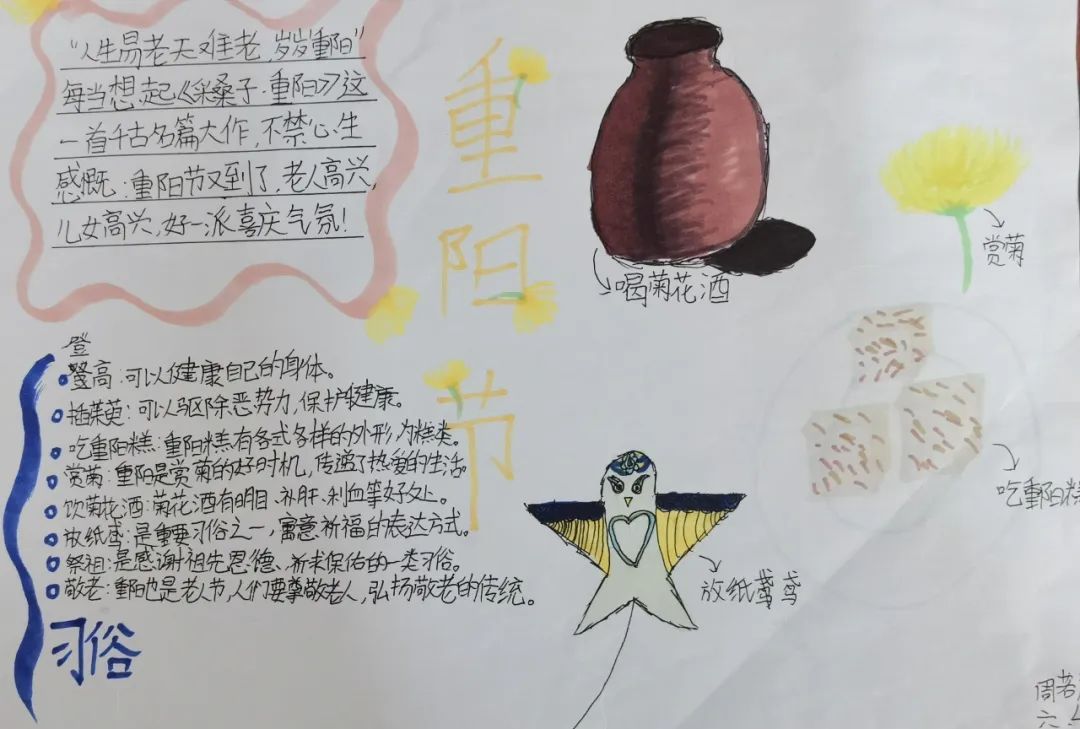 “人生易老天难老，岁岁重阳”
每当想起《采桑子·重阳》这
一首千古名篇大作，不禁心生
感慨：重阳节又到了，老人高兴，
儿女高兴，好一派喜庆气氛！
重
阳
节
喝菊花酒
赏菊
登高：可以健康自己的身体。
插茱萸：可以驱除恶势力，保护健康。
吃重阳糕：重阳糕有各式各样的外形，为糕类。
赏菊：重阳是赏菊的好时机，传递了热爱的生活。
饮菊花酒：菊花酒有明目、补肝、利血等好处。
放纸鸢：是重要习俗之一，寓意祈福的表达方式。
祭祖：是感谢祖先恩德、祈求保佑的一类习俗。
敬老：重阳也是老人节，人们要尊敬老人，弘扬敬老的传统。
习俗
吃重阳糕
放纸鸢鸢
周若
六